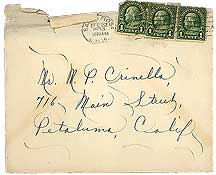 Mr. M. P. Crinella,
716 Main Street,
Petaluma, Calif